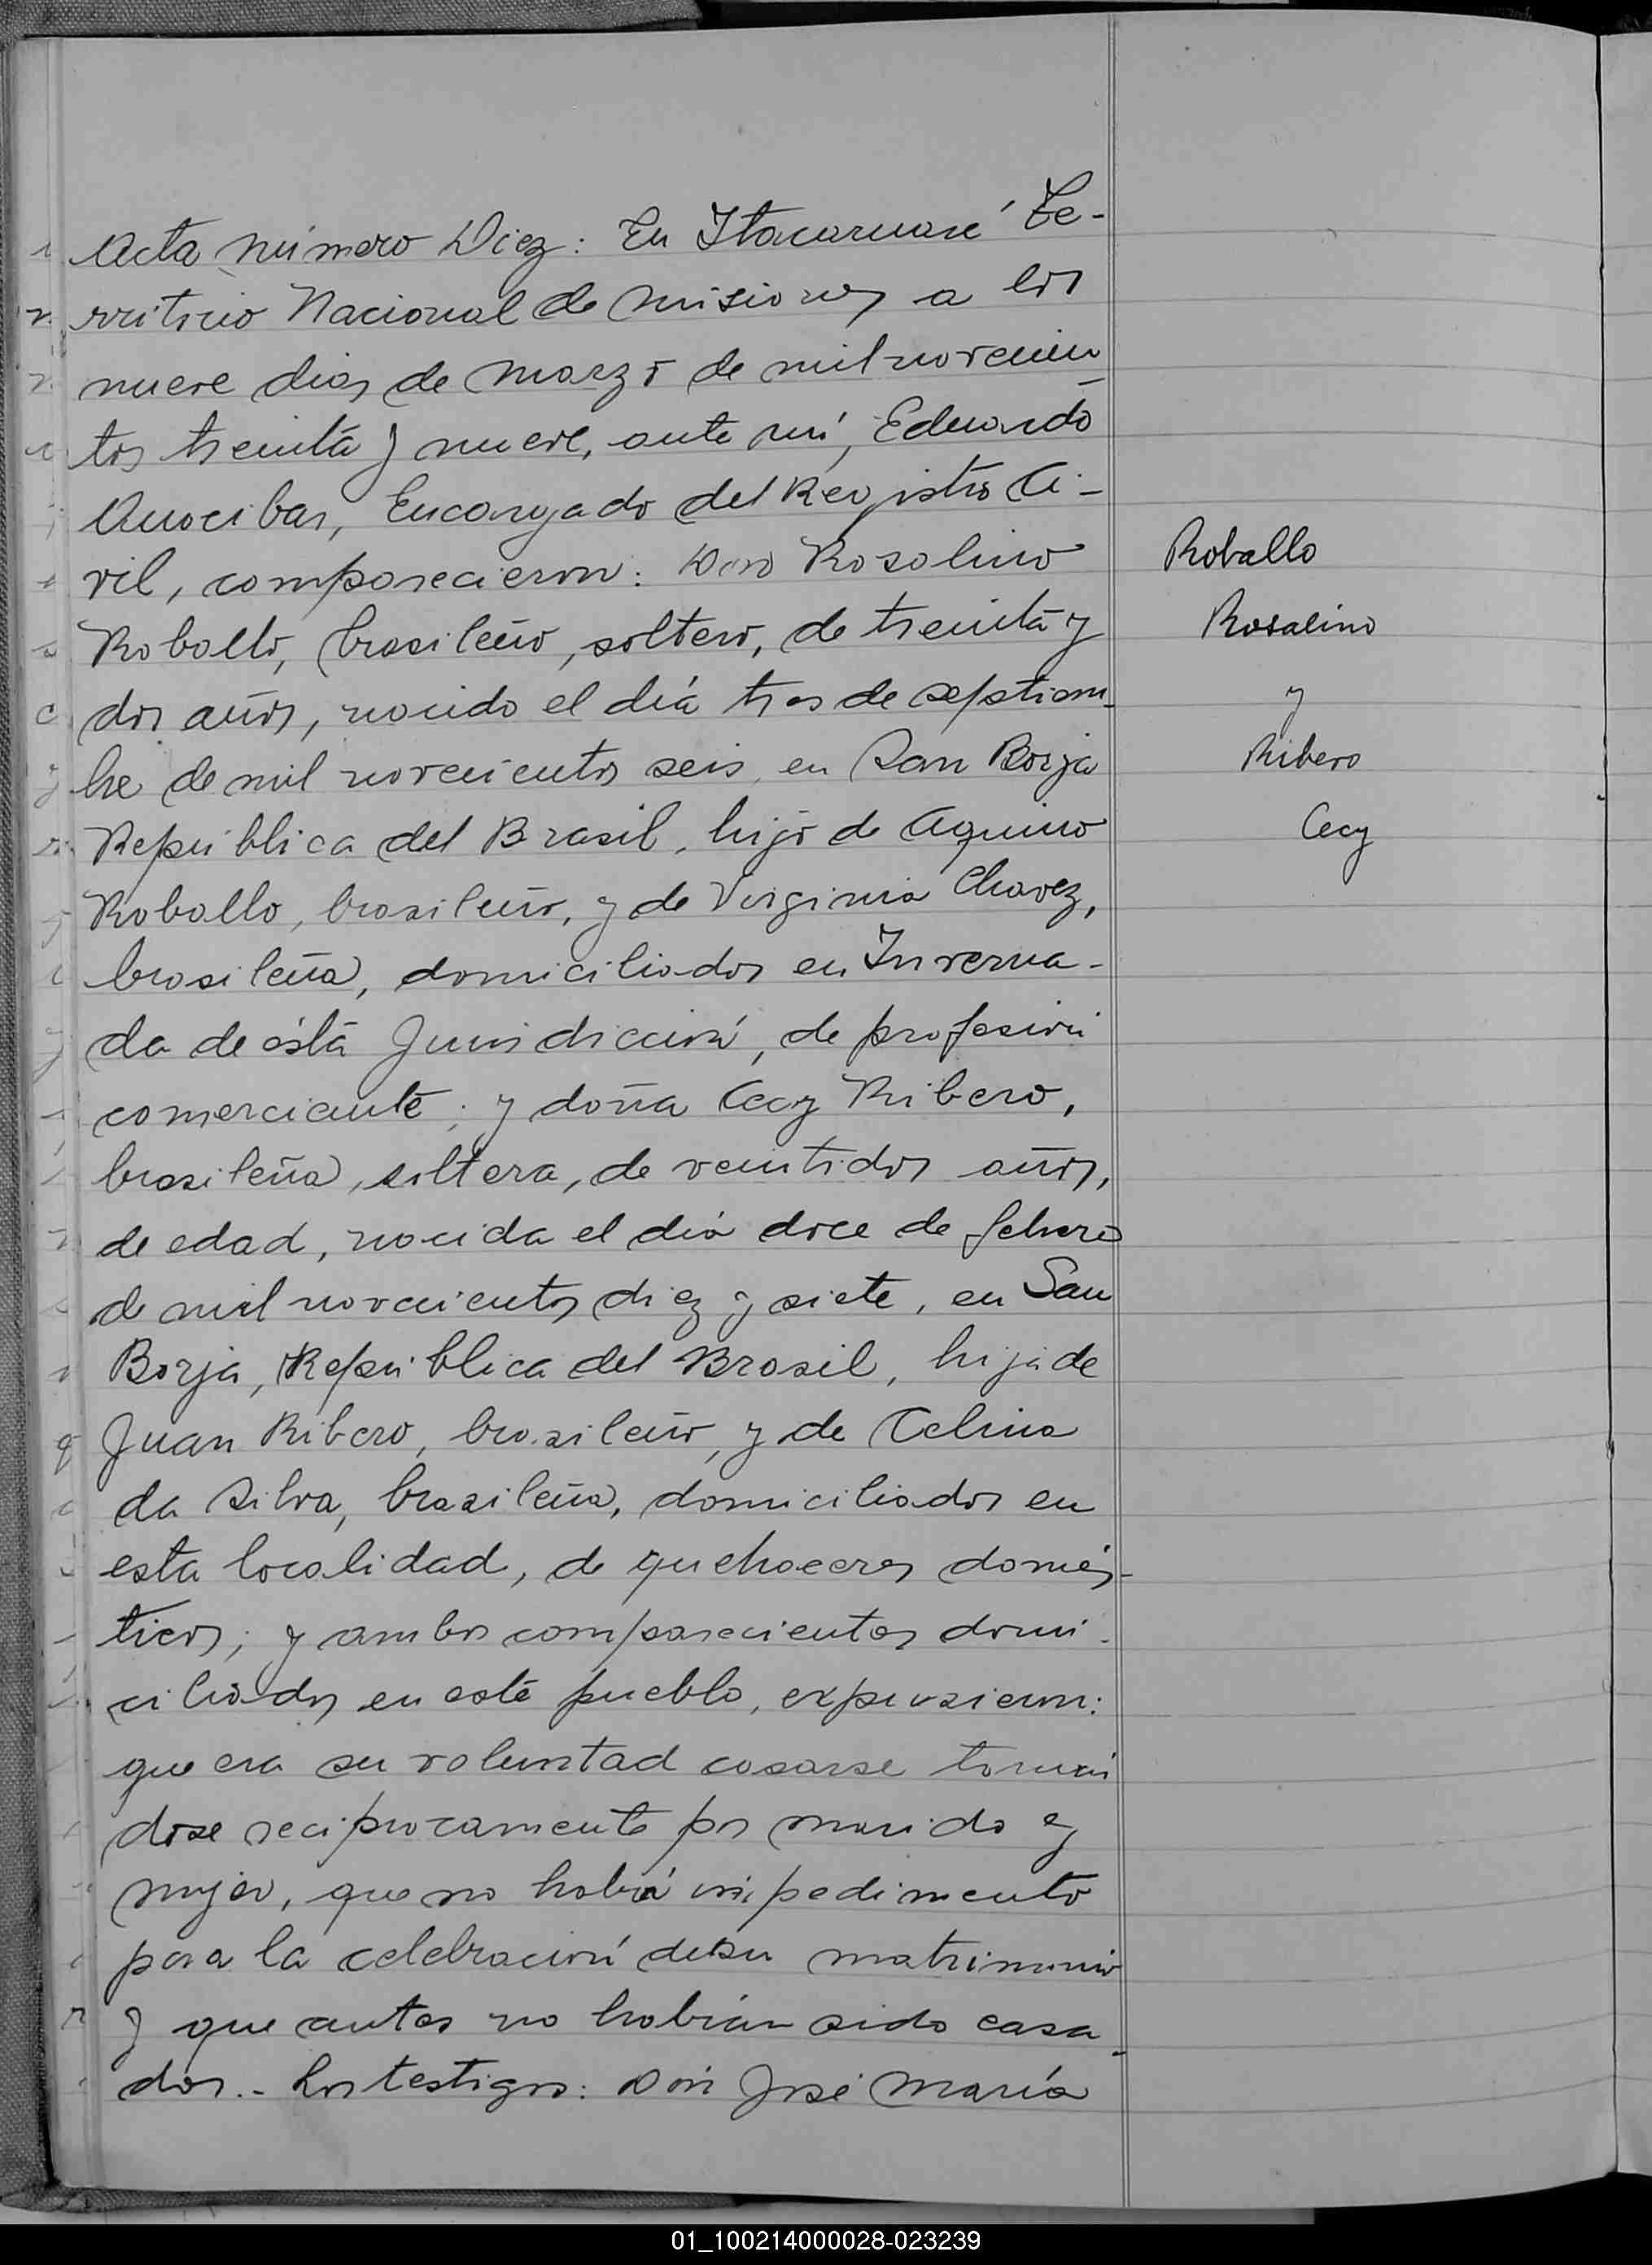 Acta número Diez: En Itacaruaré Te-
rritorio Nacional de Misiones a los
nueve dias de Marzo de mil novecien
tos treinta y nueve, ante mí, Eduardo
Anocibar, Encargado del Registro Ci-
vil, comparecieron: Don Rosalino
Roballo, brasileño, soltero, de treinta y
dos años, nacido el día tres de septiem-
bre de mil novecientos seis, en San Borja
República del Brasil, hijo de Aquino
Roballo, brasileño, y de Virginia Chavez,
brasileña, domiciliados en Inverna-
da de ésta Jurisdicción, de profesión
comerciante; y doña Cecy Ribero,
brasileña, soltera, de veintidos años,
de edad, nacida el día doce de febrero
de mil novecientos diez y siete, en San
Borja, República del Brasil, hija de
Juan Ribero, brasileño, y de Celina
da Silva, brasileña, domiciliados en
esta localidad, de quehaceres domés-
ticos; y ambos comparecientes domi-
ciliados en este pueblo, expusieron:
que era su voluntad casarse tomán
dose reciprocamente por marido y
mujer, que no había impedimento
para la celebración de su matrimonio
y que antes no habían sido casa-
dos.- Los testigos: Don José María
Roballo
Rosalino
y
Ribero
Cecy
01_100214000028-023239